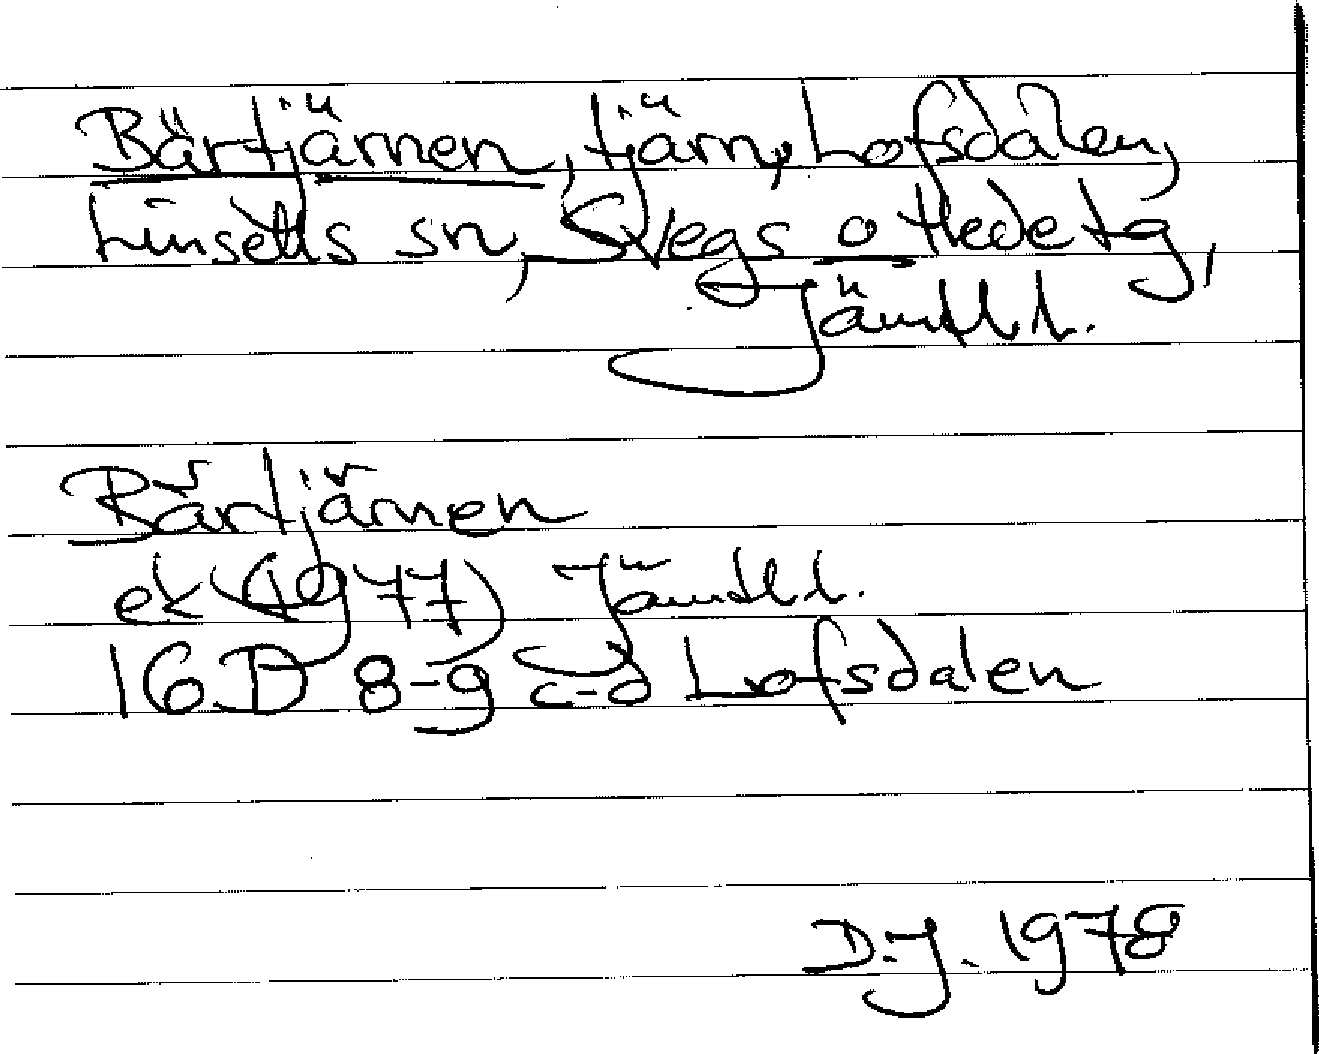 Bärtjärnen, tjärn, Lofsdalen,
Linsells sn, Svegs o Hede tg,
Jämtl.l.
Bärtjärnen
ek (1977) Jämtl.l.
16D 8-9 c-d Lofsdalen
D.J. 1978